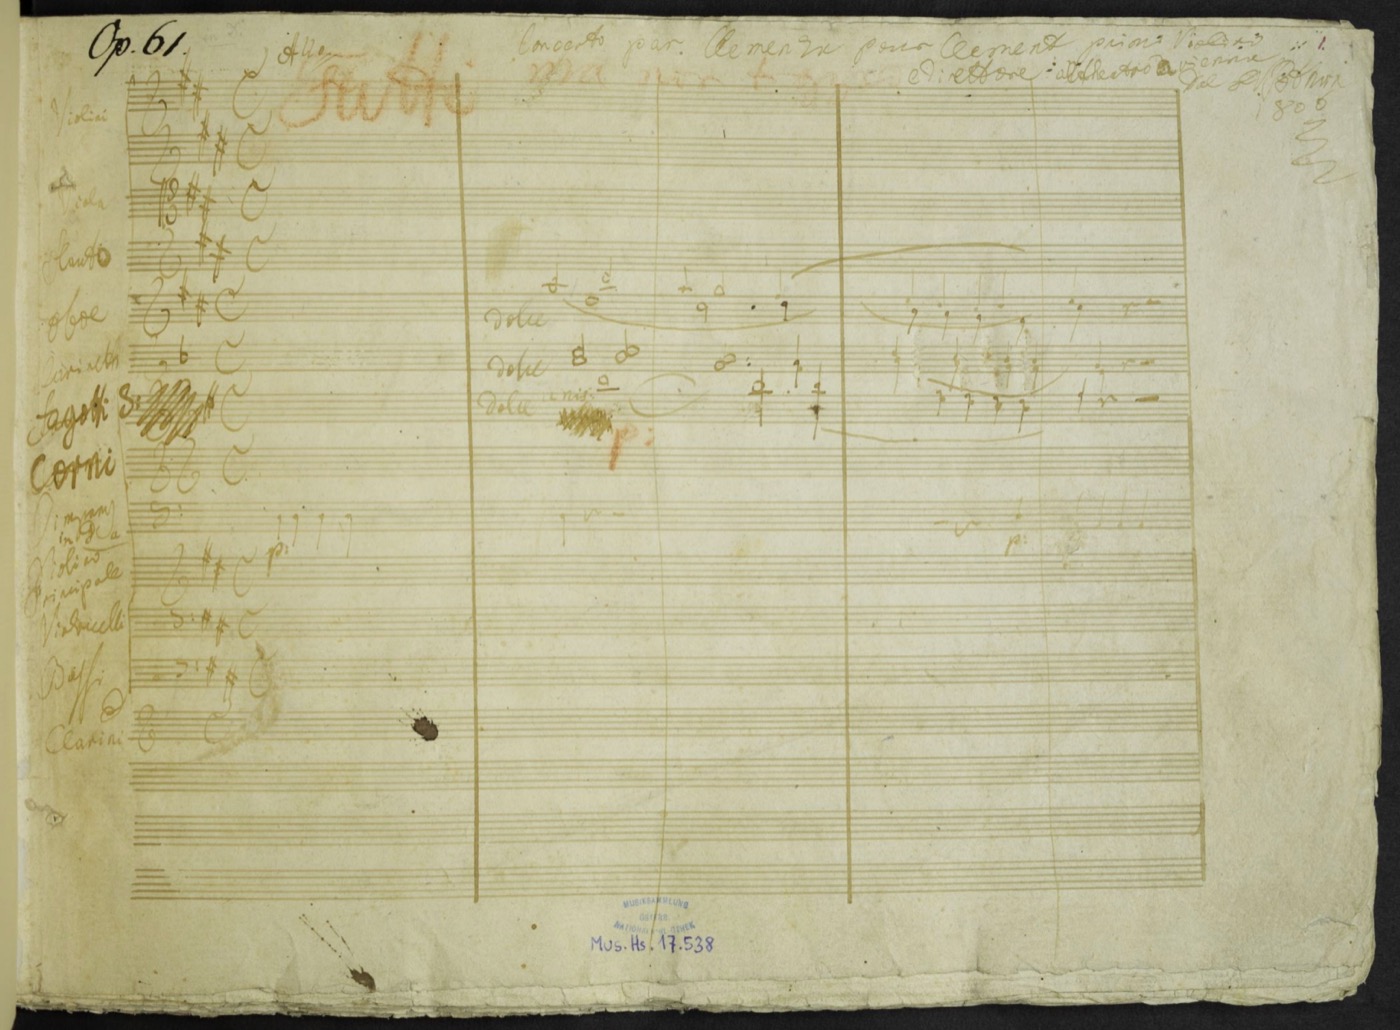 Op. 61.
Allo
Concerto par Clemenza pour Clement primo Violino
1.
Tutti
ma non t
e Direttore al theatro a vienne
Dal L. v. Bthvn
1806
Violini
Viola
Flauto
Oboe
dolce
Clarinetti
dolce
Fagotti
dolce unis:
p:
Corni
Timpani
in D A
p:
p:
Violino
Principale
Violoncelli
Bassi
Clarini
MUSIKSAMMLUNG
ÖSTERR.
NATIONALBIBLIOTHEK
Mus. Hs. 17.538